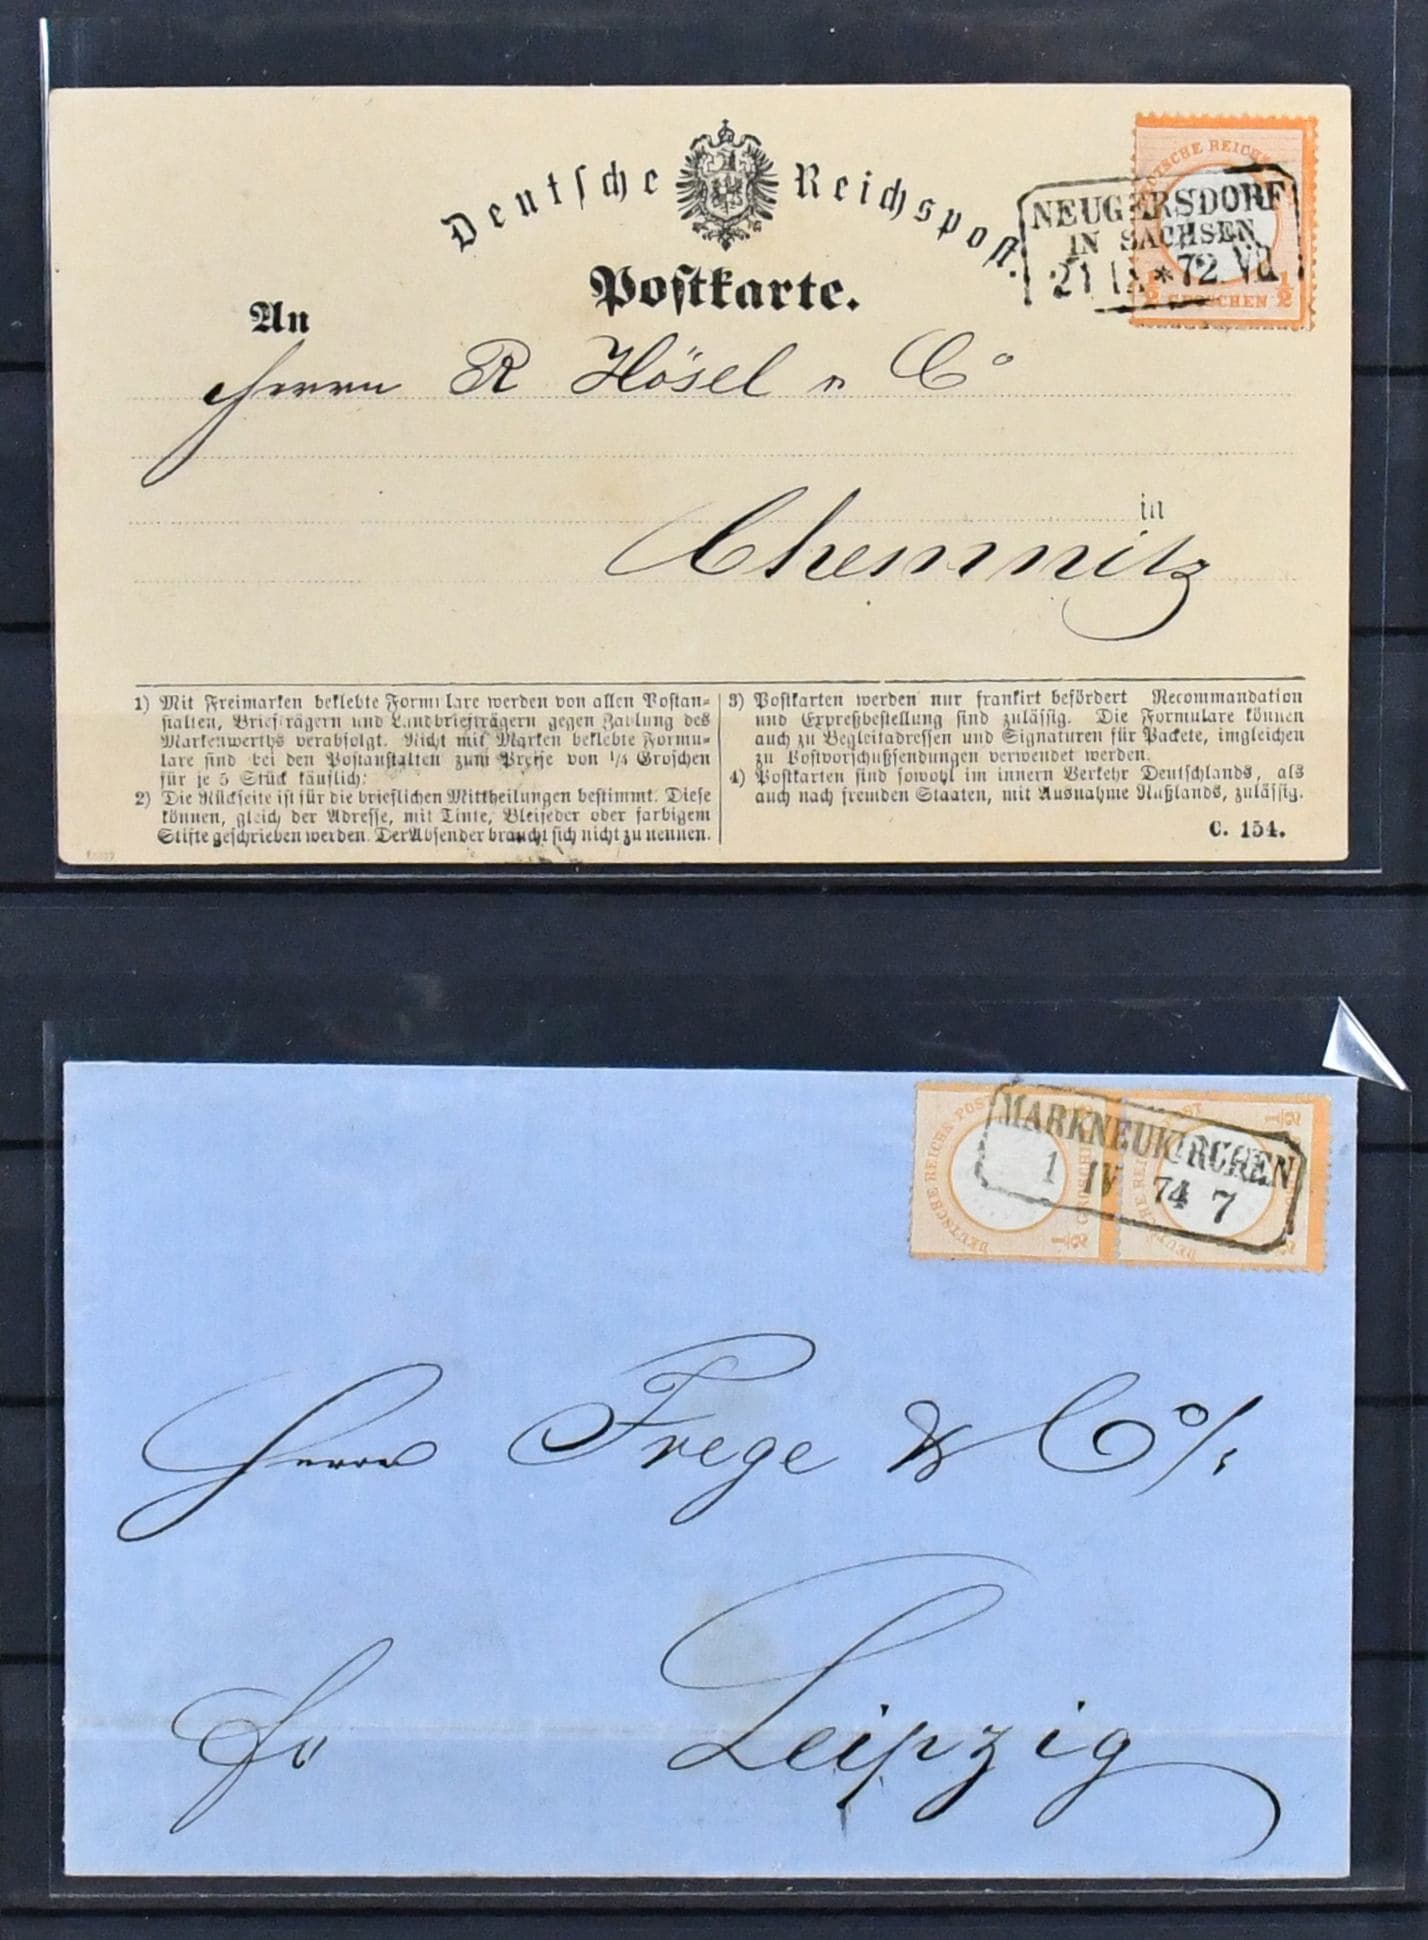 Deutsche Reichspost.
NEUGERSDORF
IN SACHSEN
21 IX * 72 VII
DEUTSCHE REICHS
½ GROSCHEN ½
Postkarte.
An
Herrn R Hösel u Co
in
Chemnitz
1) Mit Freimarken beklebte Formulare werden von allen Postan-
stalten, Briefträgern und Landbriefträgern gegen Zahlung des
Markenwerths verabfolgt. Nicht mit Marken beklebte Formu-
lare sind bei den Postanstalten zum Preise von ¼ Groschen
für je 5 Stück käuflich;
2) Die Rückseite ist für die brieflichen Mittheilungen bestimmt. Diese
können, gleich der Adresse, mit Tinte, Bleifeder oder farbigem
Stifte geschrieben werden. Der Absender braucht sich nicht zu nennen.
3) Postkarten werden nur frankirt befördert Recommandation
und Expreßbestellung sind zulässig. Die Formulare können
auch zu Begleitadressen und Signaturen für Packete, imgleichen
zu Postvorschußsendungen verwendet werden.
4) Postkarten sind sowohl im innern Verkehr Deutschlands, als
auch nach fremden Staaten, mit Ausnahme Rußlands, zulässig.
C. 154.
DEUTSCHE REICHS POST
½ GROSCHEN
MARKNEUKIRCHEN
1 IV 74 7
Herrn Frege & Co/.
Leipzig